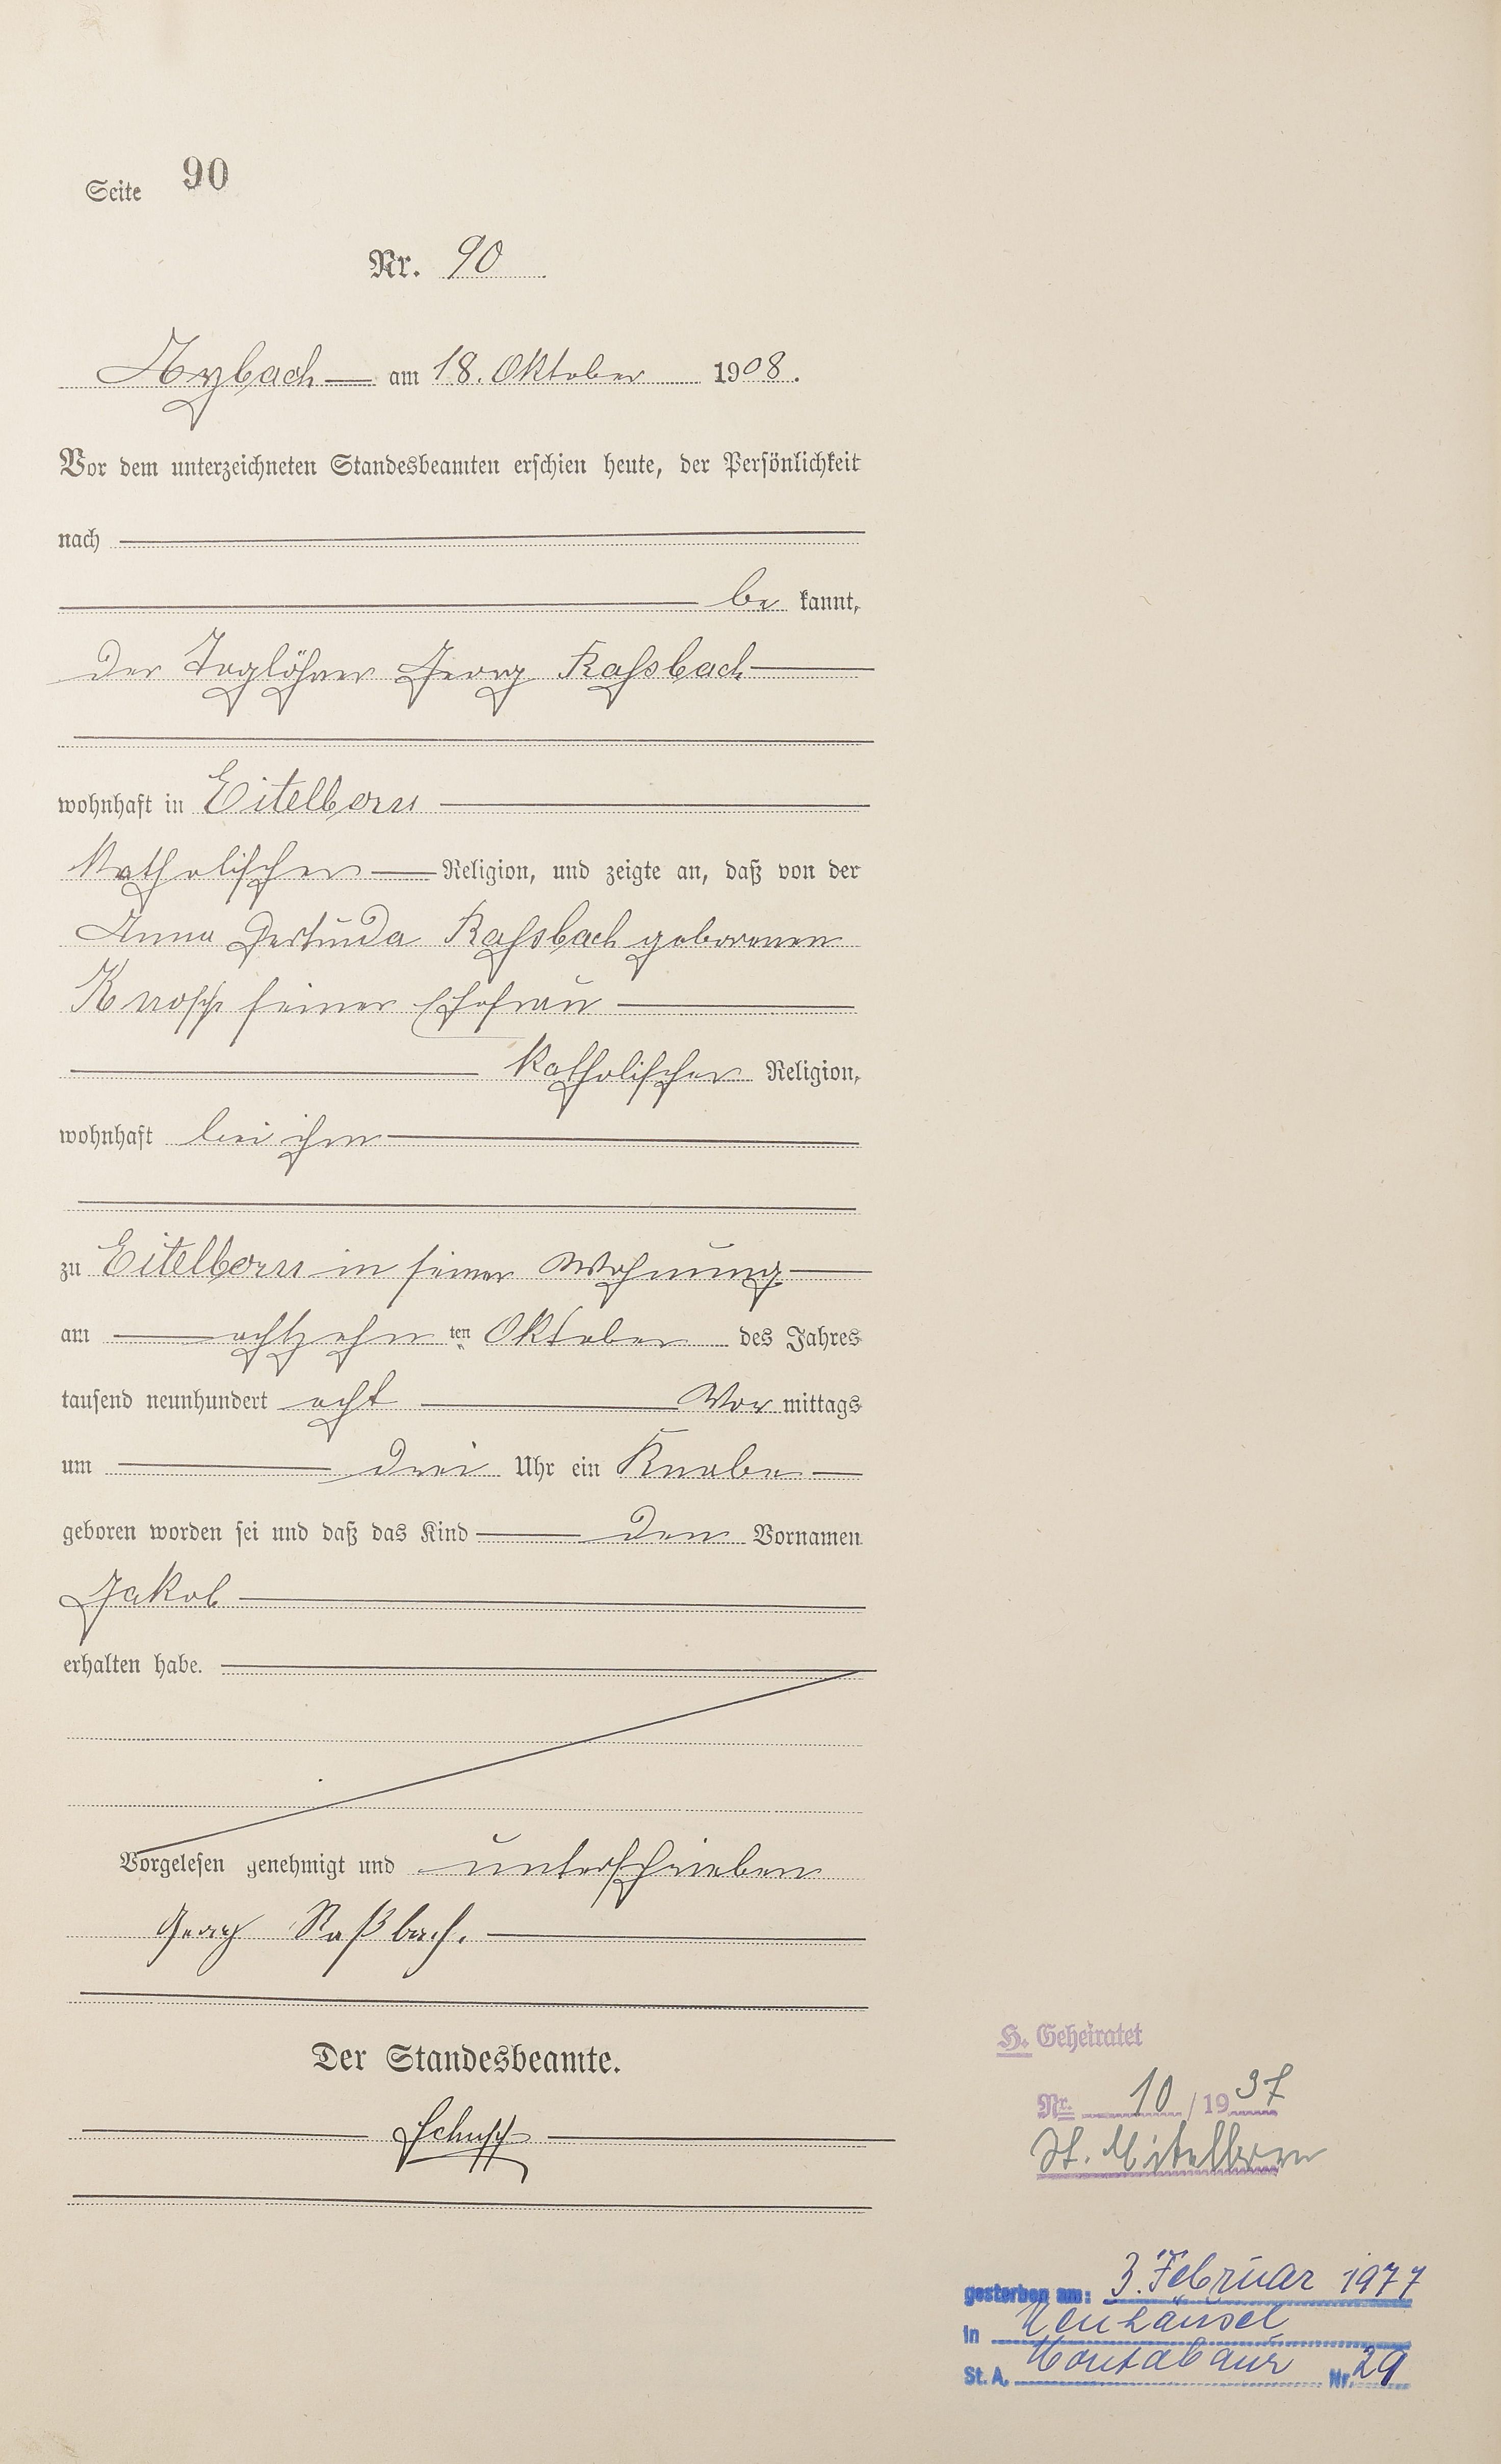 Seite 90
Nr. 90
Arzbach am 18. Oktober 1908.
Vor dem unterzeichneten Standesbeamten erschien heute, der Persönlichkeit
nach
be kannt,
der Taglöhner Georg Raßbach
wohnhaft in Eitelborn
katholischer Religion, und zeigte an, daß von der
Anna Gertruda Raßbach geborenen
Knopp seiner Ehefrau
katholischer Religion,
wohnhaft bei ihm
zu Eitelborn in seiner Wohnung
am achtzehn ten Oktober des Jahres
tausend neunhundert acht Vor mittags
um drei Uhr ein Knabe
geboren worden sei und daß das Kind den Vornamen
Jakob
erhalten habe.
Vorgelesen genehmigt und unterschrieben
Georg Raßbach.
Der Standesbeamte.
Schupp
H. Geheiratet
Nr. 10 / 1937
St. Eitelborn
gestorben am: 3. Februar 1977
in Neuhäusel
St. A. Montabaur Nr. 29